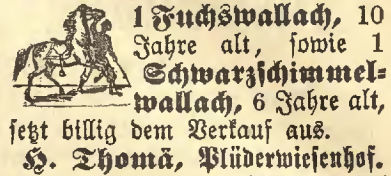 1 Fuchswallach, 10
Jahre alt, sowie 1
Schwarzschimmel-
wallach, 6 Jahre alt,
setzt billig dem Verkauf aus.
H. Thomä, Plüderwiesenhof.